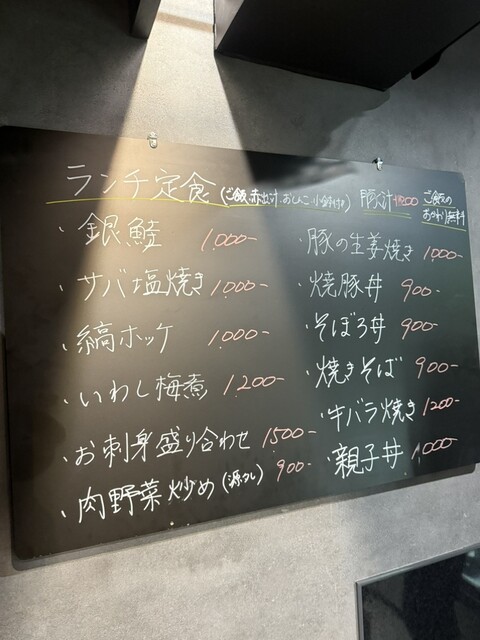 ランチ定食(ご飯、赤出汁、おしんこ、小鉢付き) 豚汁+100 ご飯の
おかわり無料
・銀鮭 1,000-
・サバ塩焼き 1,000-
・縞ホッケ 1,000-
・いわし梅煮 1,200-
・お刺身盛り合わせ 1500-
・肉野菜炒め 900-
・豚の生姜焼き 1,000-
・焼豚丼 900-
・そぼろ丼 900-
・焼きそば 900-
・牛バラ焼き 1200-
・親子丼 1,000-